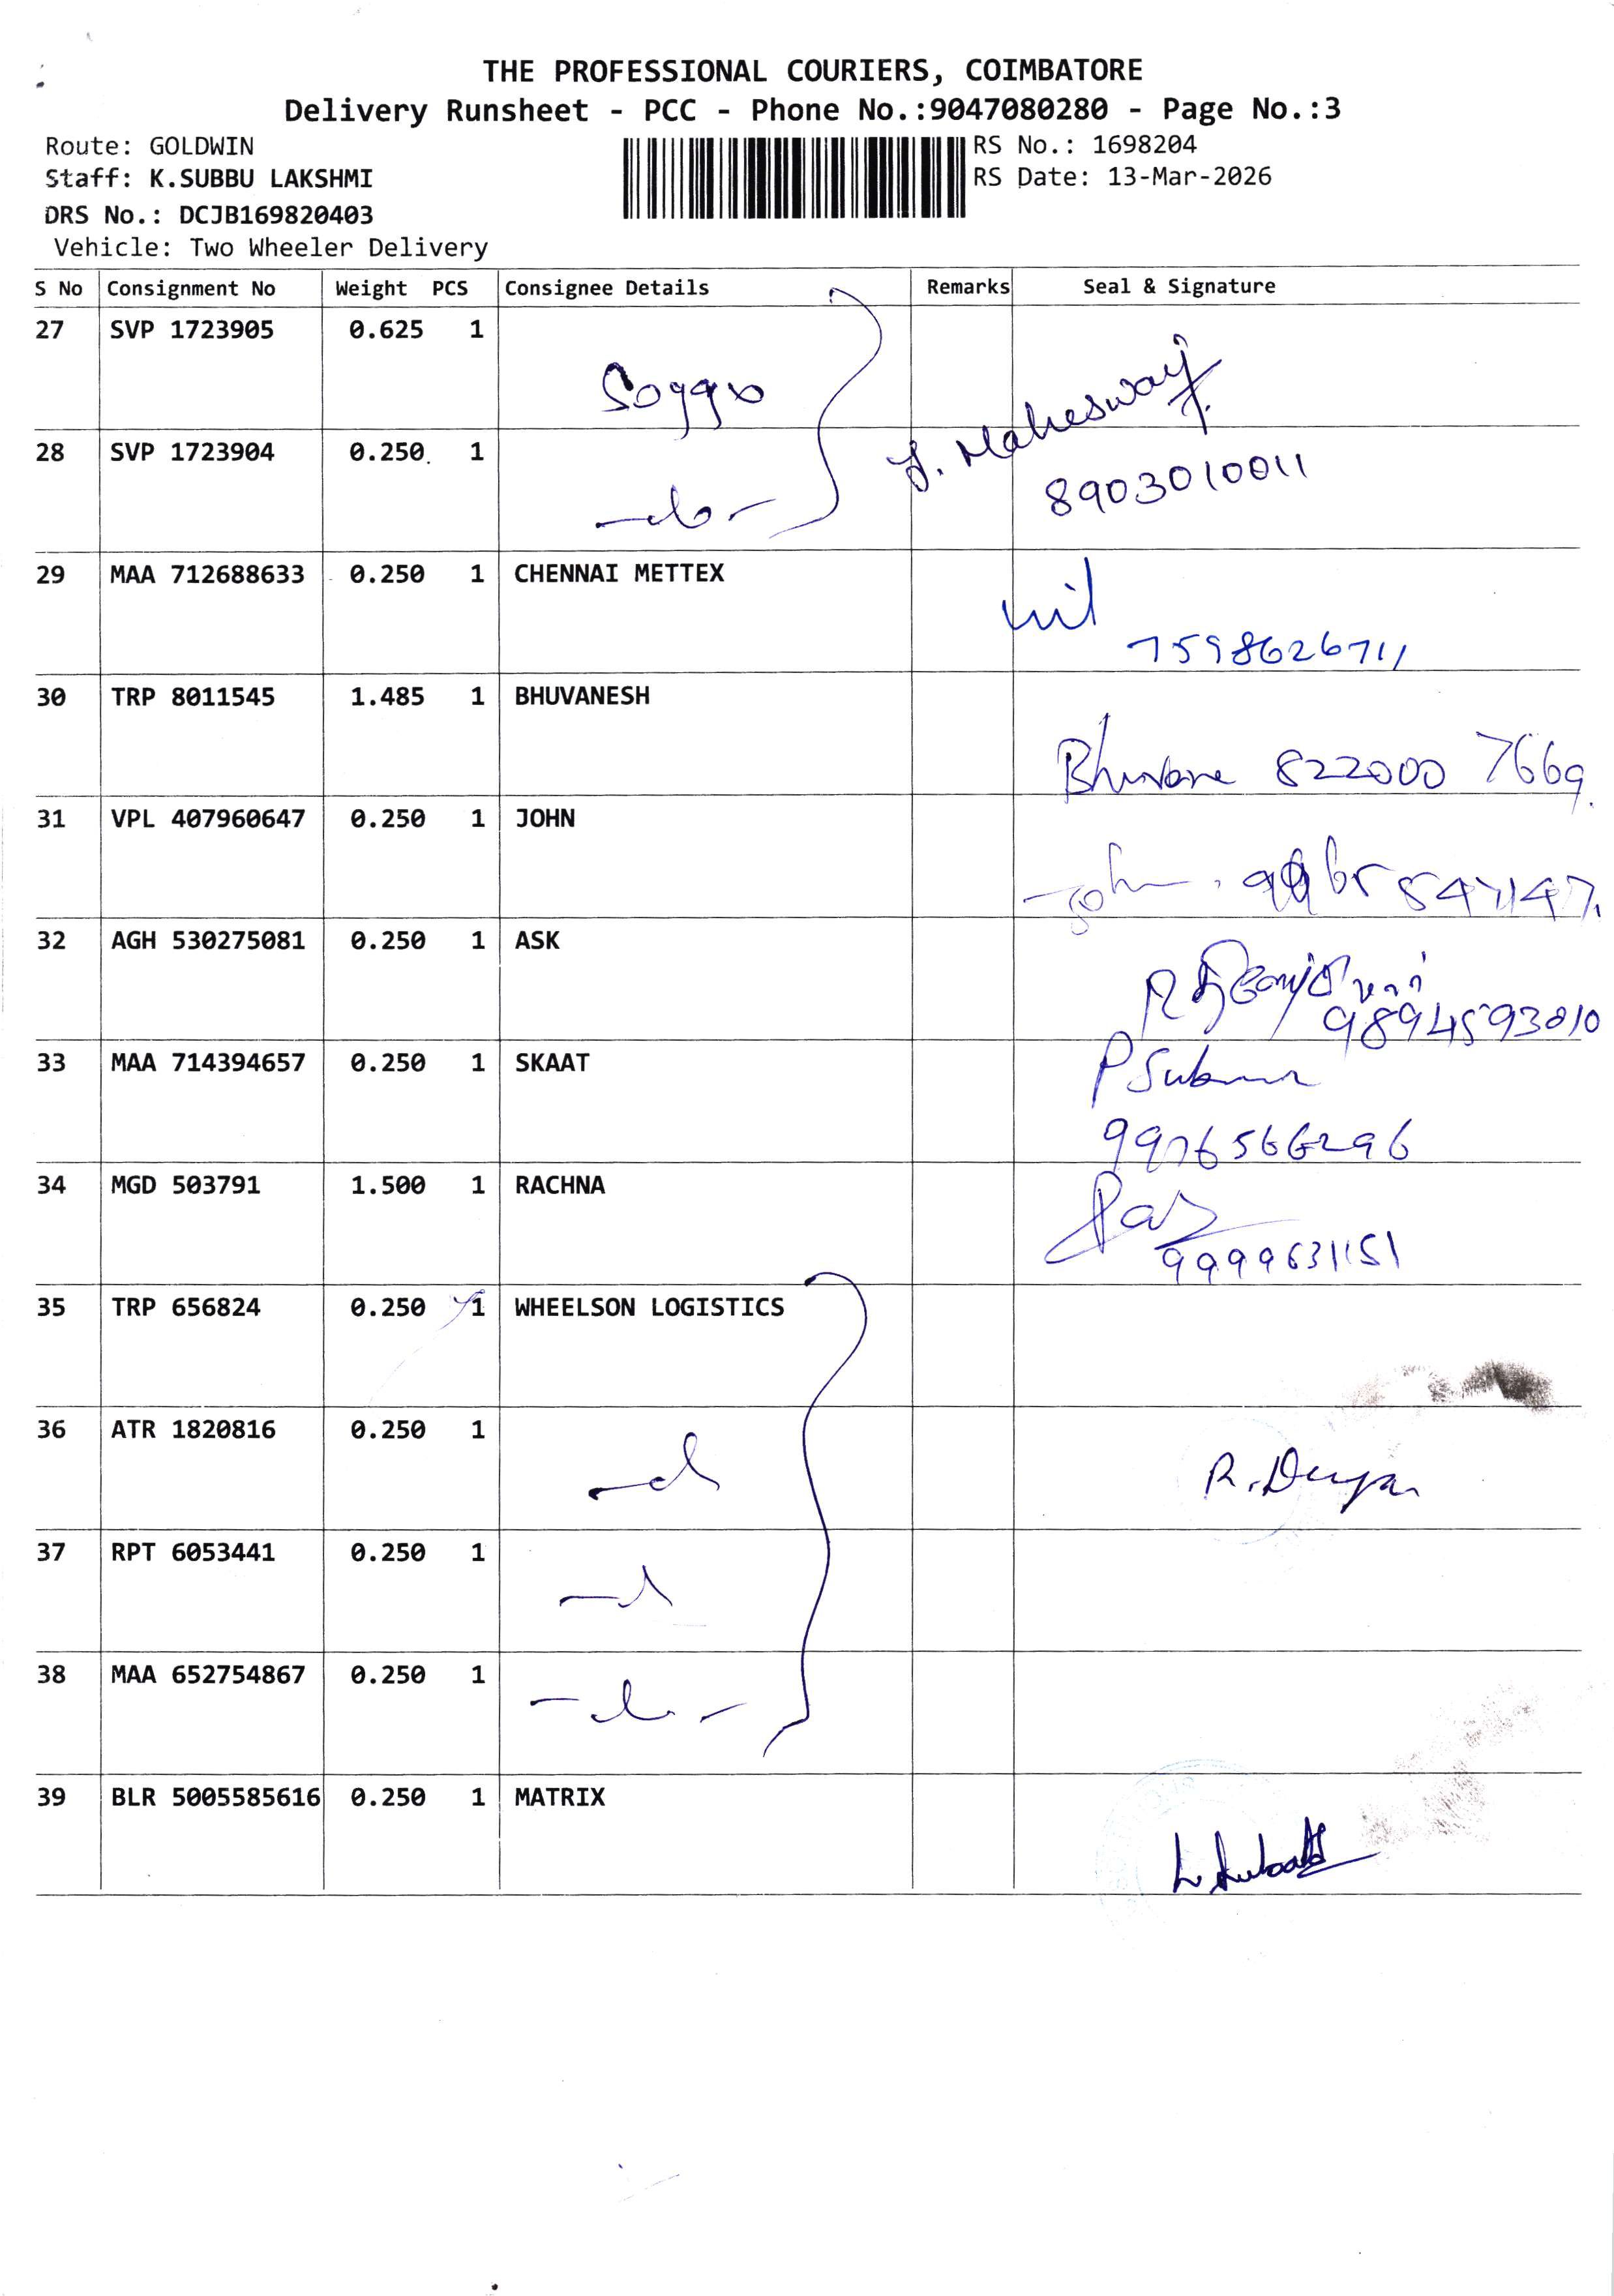 THE PROFESSIONAL COURIERS, COIMBATORE
Delivery Runsheet - PCC - Phone No.:9047080280 - Page No.:3
Route: GOLDWIN
RS No.: 1698204
Staff: K.SUBBU LAKSHMI
RS Date: 13-Mar-2026
DRS No.: DCJB169820403
Vehicle: Two Wheeler Delivery
S No Consignment No Weight PCS Consignee Details Remarks Seal & Signature
27 SVP 1723905 0.625 1
J. Maheswary
28 SVP 1723904 0.250 1
8903010011
-do-
29 MAA 712688633 0.250 1 CHENNAI METTEX
7598626711
30 TRP 8011545 1.485 1 BHUVANESH
822000 7669
31 VPL 407960647 0.250 1 JOHN
John
32 AGH 530275081 0.250 1 ASK
9894593010
33 MAA 714394657 0.250 1 SKAAT
9976566296
34 MGD 503791 1.500 1 RACHNA
9999631151
35 TRP 656824 0.250 1 WHEELSON LOGISTICS
36 ATR 1820816 0.250 1
37 RPT 6053441 0.250 1
38 MAA 652754867 0.250 1
39 BLR 5005585616 0.250 1 MATRIX